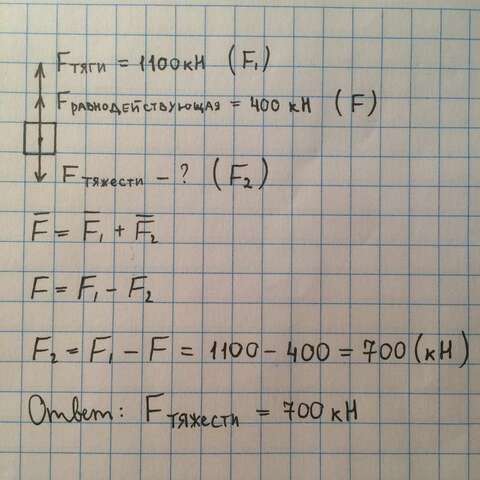 Fтяги = 1100 кН (F₁)
Fравнодействующая = 400 кН (F)
Fтяжести – ? (F₂)
F̅ = F̅₁ + F̅₂
F = F₁ – F₂
F₂ = F₁ – F = 1100 – 400 = 700 (кН)
Ответ: Fтяжести = 700 кН